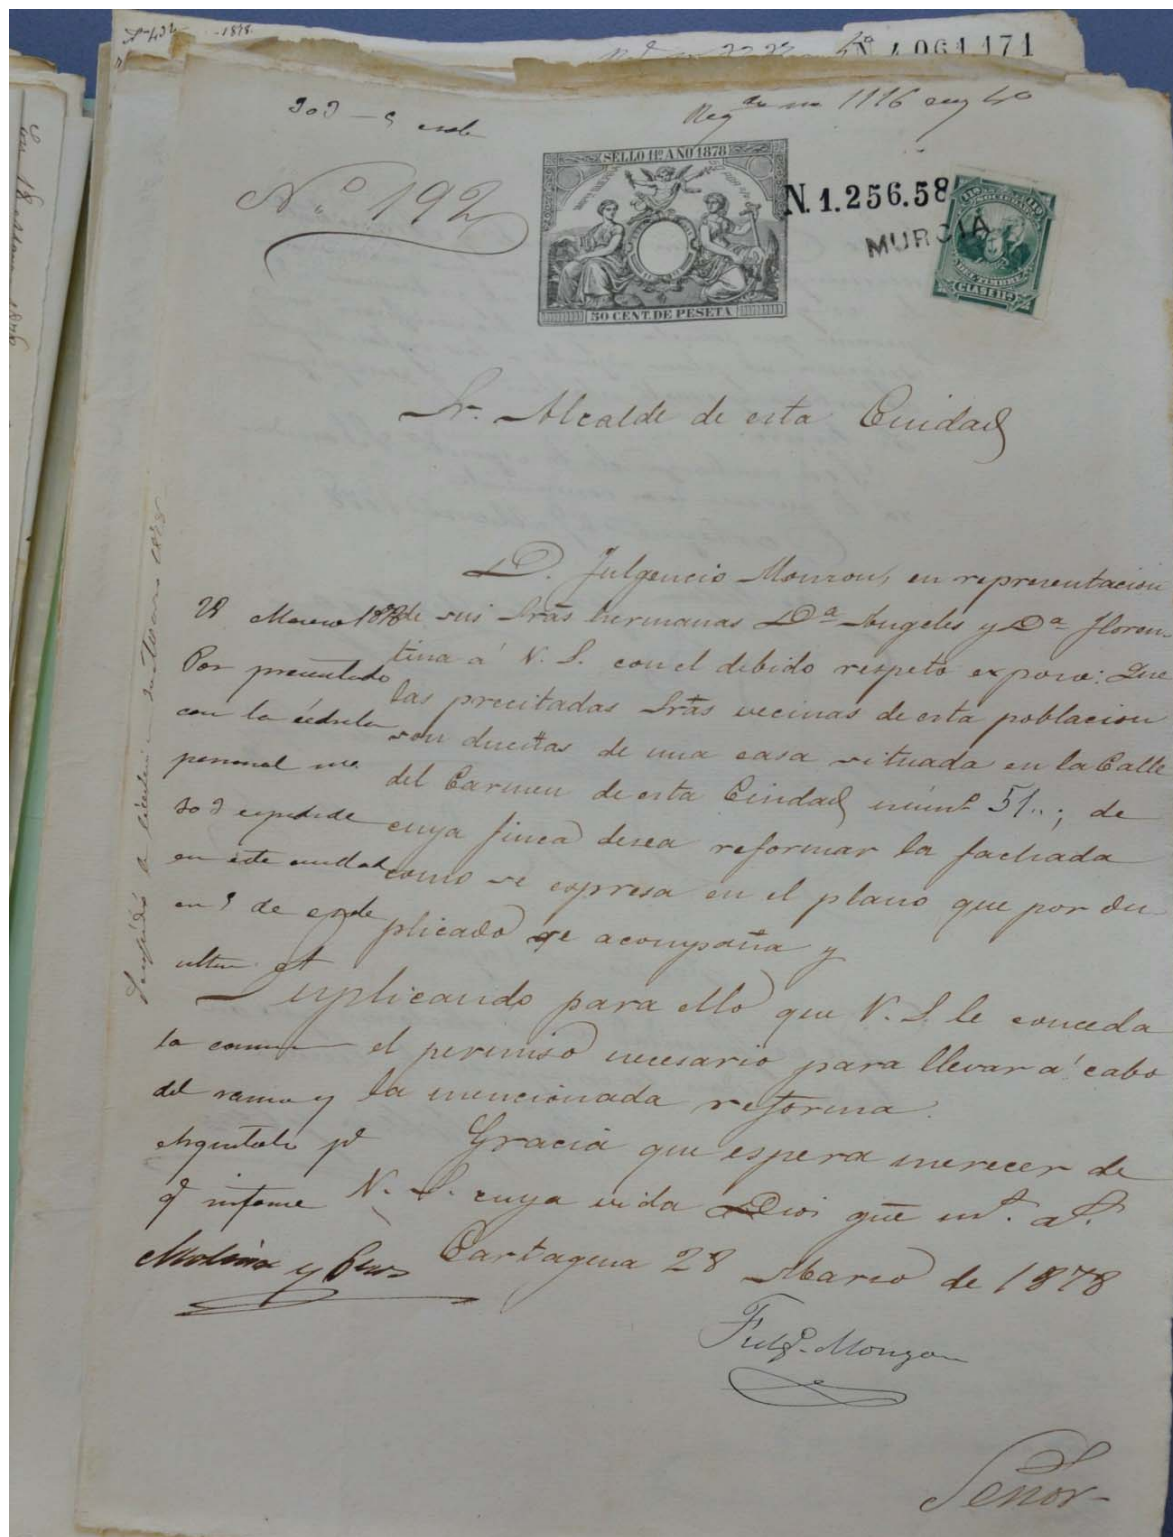 1878
Nº 1.064.171
303 - 5 enbe
Regdo nº 1116 en 4º
Nº 192
SELLO 11º AÑO 1878
50 CENT. DE PESETA
N. 1.256.58
MURCIA
DEL TIMBRE
CLASE 11ª
Sr. Alcalde de esta Ciudad
D. Fulgencio Monzon, en representacion
de sus Sras hermanas Dª Angeles y Dª Floren-
tina á V. S. con el debido respeto expone: Que
las precitadas Sras vecinas de esta poblacion
son dueñas de una casa situada en la Calle
del Carmen de esta Ciudad númº 51..; de
cuya finca desea reformar la fachada
como se espresa en el plano que por du-
plicado se acompaña y
Suplicando para ello que V. S. le conceda
el permiso necesario para llevar á cabo
la mencionada reforma.
Gracia que espera merecer de
V. S. cuya vida Dios gue ms. as.
Cartagena 28 Marzo de 1878
Fulgº. Monzon
Señor
28 Marzo 1878
Por presentado
con la cédula
personal nº
303 espedida
en esta ciudad
en 5 de enbe
ultº
la comon
del ramo y
Arquitecto pª
qe informe
Molina y Cros